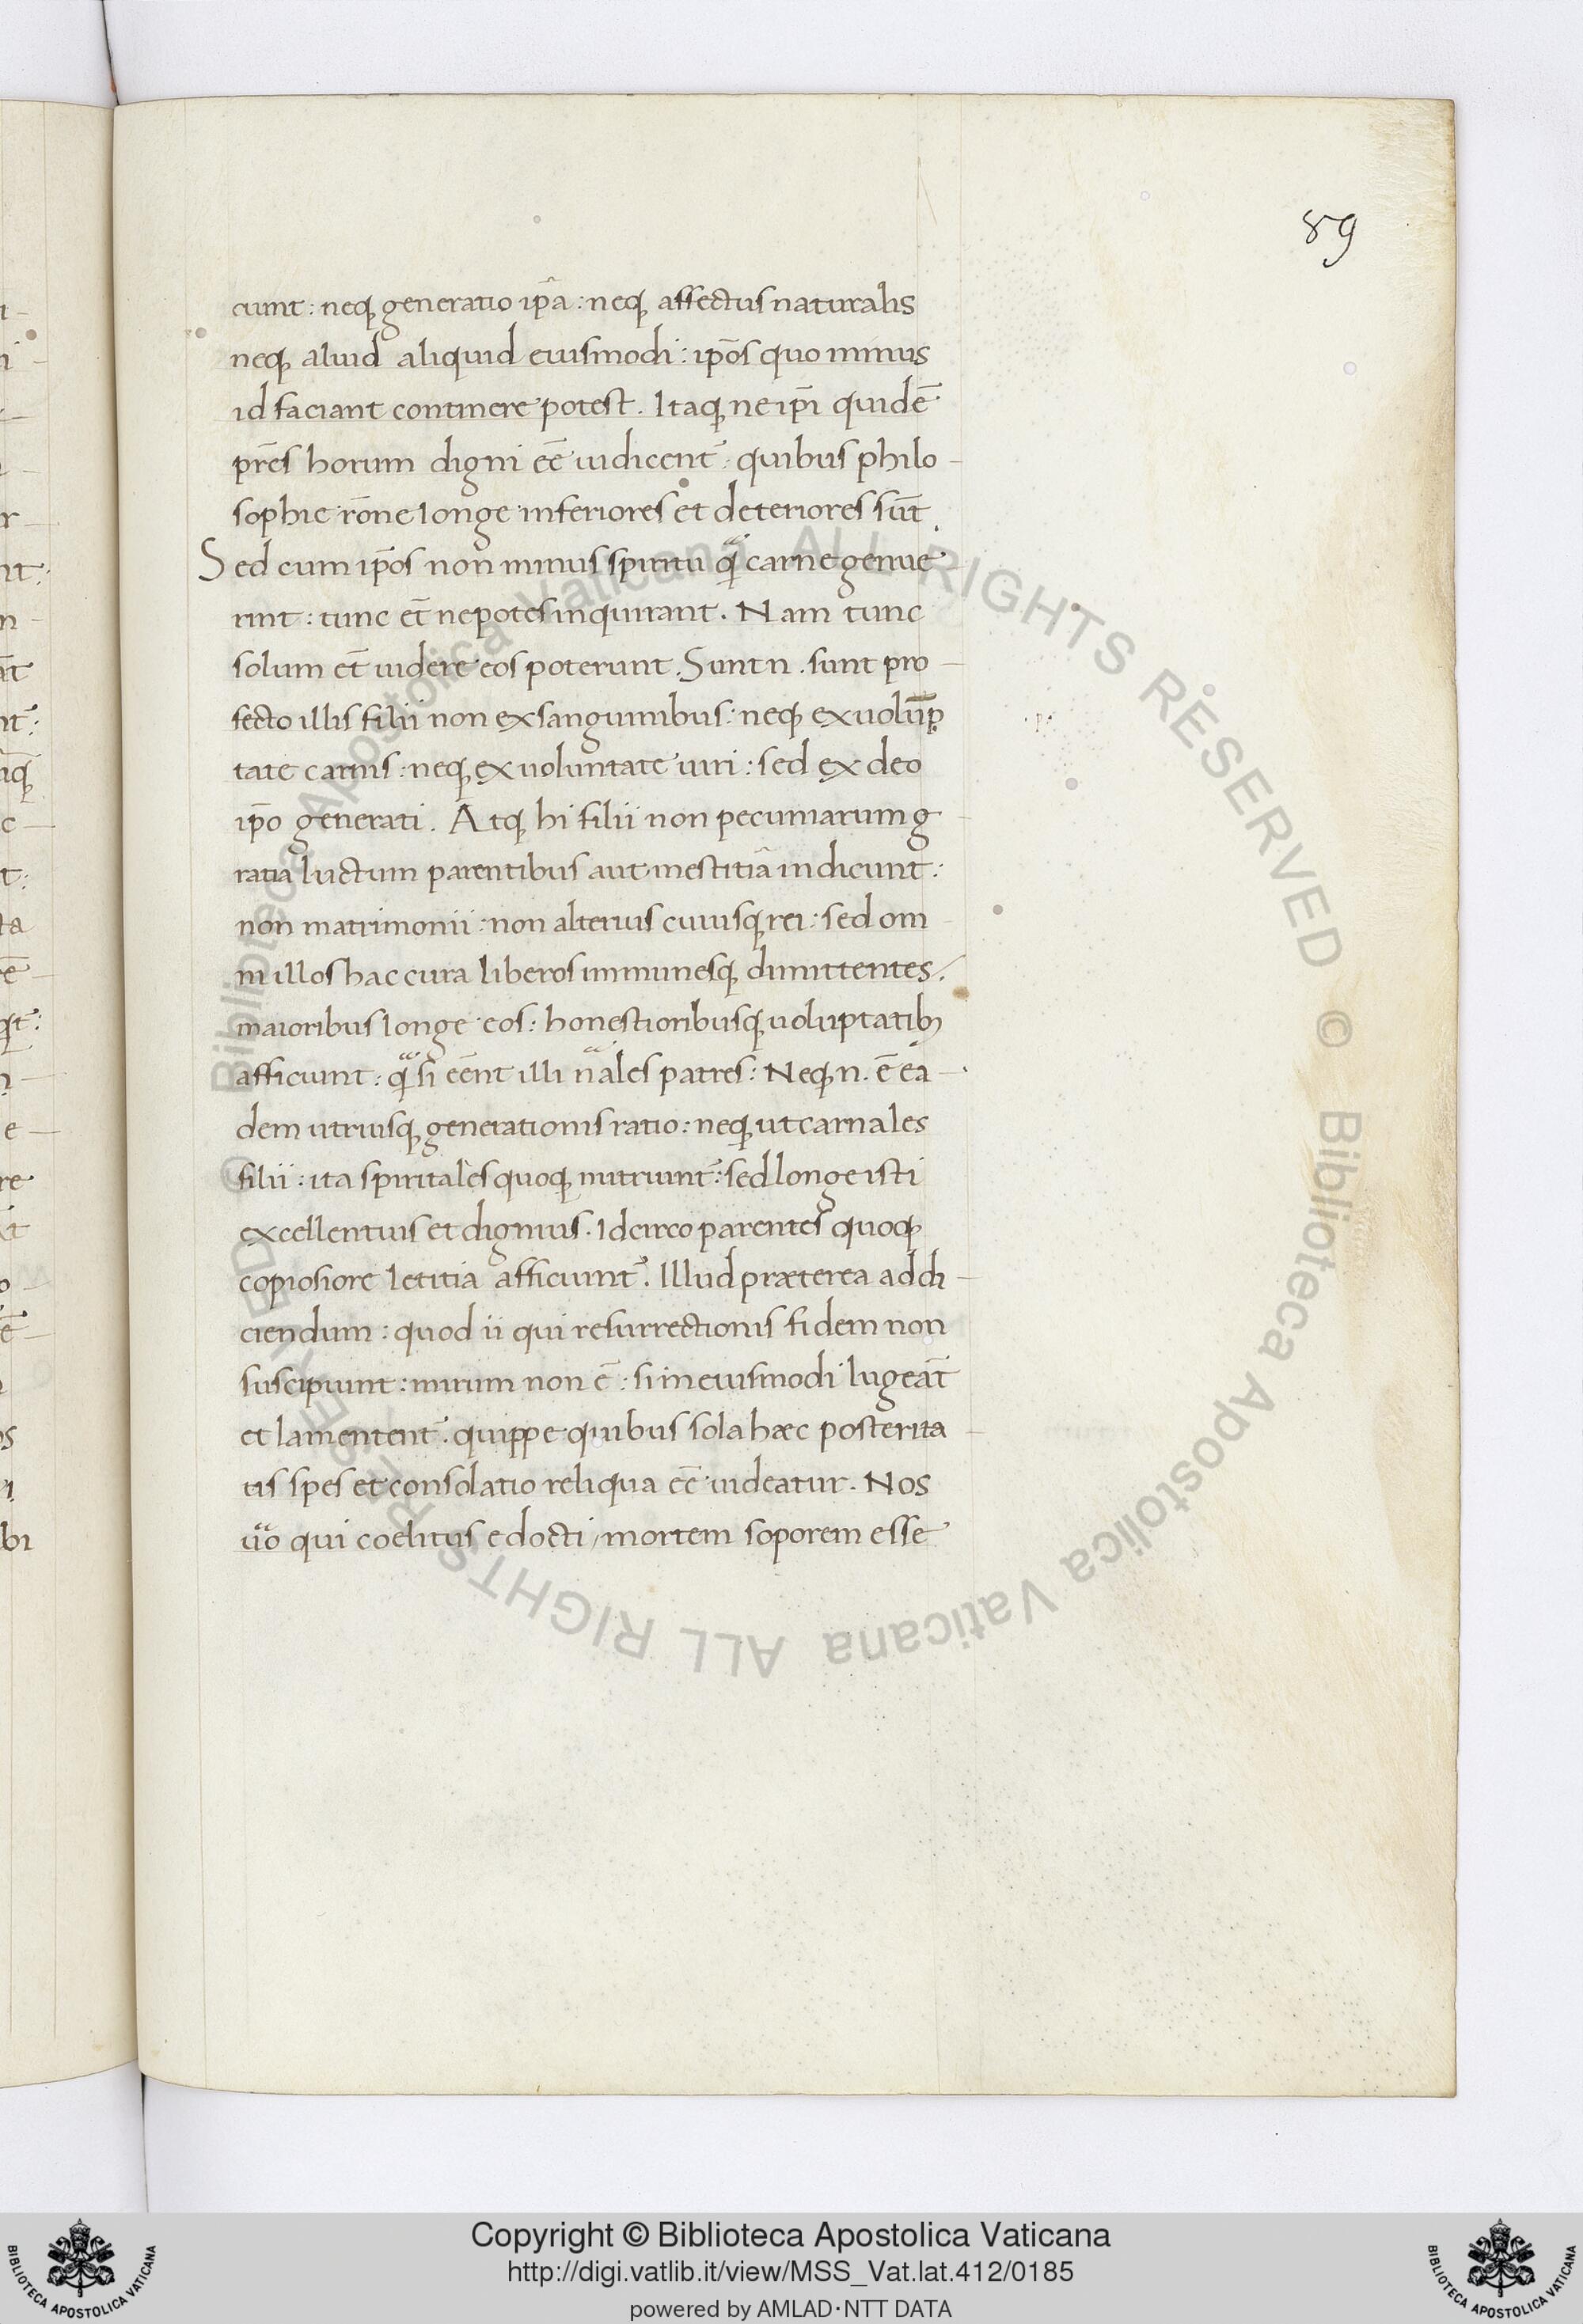 89
cunt: neq generatio ip̄a: neq affectus naturalis
neq aliud aliquid eiusmodi: ip̄os quo minus
id faciant continere potest. Itaq ne ip̄i quidē
pr̄es horum digni eē uidicent̄: quibus philo
sophie rōne longe inferiores et deteriores sūt.
Sed cum ip̄os non minus spiritu q̄ carne genue
rint: tunc et̄ nepotes inquirant. Nam tunc
solum et̄ uidere eos poterunt. Sunt n. sunt pro
fecto illis filii non ex sanguinibus: neq ex uolūp
tate carnis: neq ex uoluntate uiri: sed ex deo
ip̄o generati. Atq hi filii non pecuniarum g
ratia luctum parentibus aut mestitiā indicunt:
non matrimonii: non alterius cuiusq rei: sed om
ni illos hac cura liberos immunesq dimittentes.
maioribus longe eos: honestioribusq uoluptatib;
afficiunt: q̄ si eēnt illi n̄ales patres: Neq n. ē ea
dem utriusq generationis ratio: neq ut carnales
filii: ita spiritales quoq nutriunt̄: sed longe isti
excellentius et dignius. Idcirco parentes quoq
copiosiore letitia afficiunt̄. Illud præterea addi
ciendum: quod ii qui resurrectionis fidem non
suscipiunt: mirum non ē: si in eiusmodi lugeāt
et lamentent̄. quippe quibus sola hæc posterita
tis spes et consolatio reliqua eē uideatur. Nos
ūo qui coelitus edocti / mortem soporem esse
© Biblioteca Apostolica Vaticana ALL RIGHTS RESERVED © Biblioteca Apostolica Vaticana ALL RIGHTS RESERVED
Copyright © Biblioteca Apostolica Vaticana
http://digi.vatlib.it/view/MSS_Vat.lat.412/0185
powered by AMLAD·NTT DATA
BIBLIOTECA APOSTOLICA VATICANA
BIBLIOTECA APOSTOLICA VATICANA